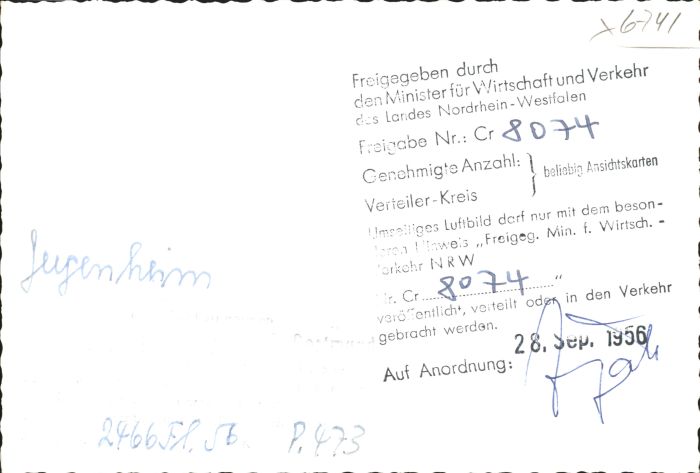 x6741
Freigegeben durch
den Minister für Wirtschaft und Verkehr
des Landes Nordrhein-Westfalen
Freigabe Nr.: Cr 8074
Genehmigte Anzahl: } beliebig Ansichtskarten
Verteiler-Kreis
Umseitiges Luftbild darf nur mit dem beson-
deren Hinweis „Freigeg. Min. f. Wirtsch. -
Verkehr NRW
Nr. Cr 8074 "
veröffentlicht, verteilt oder in den Verkehr
gebracht werden.
28. Sep. 1956
Auf Anordnung:
Jugenheim
Dortmund
2466 Fl. 56 P. 473